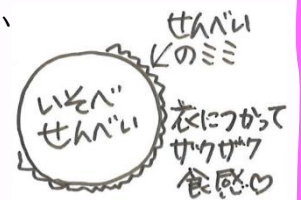 せんべい
のミミ
いそべ
せんべい
衣につかって
ザクザク
食感♡